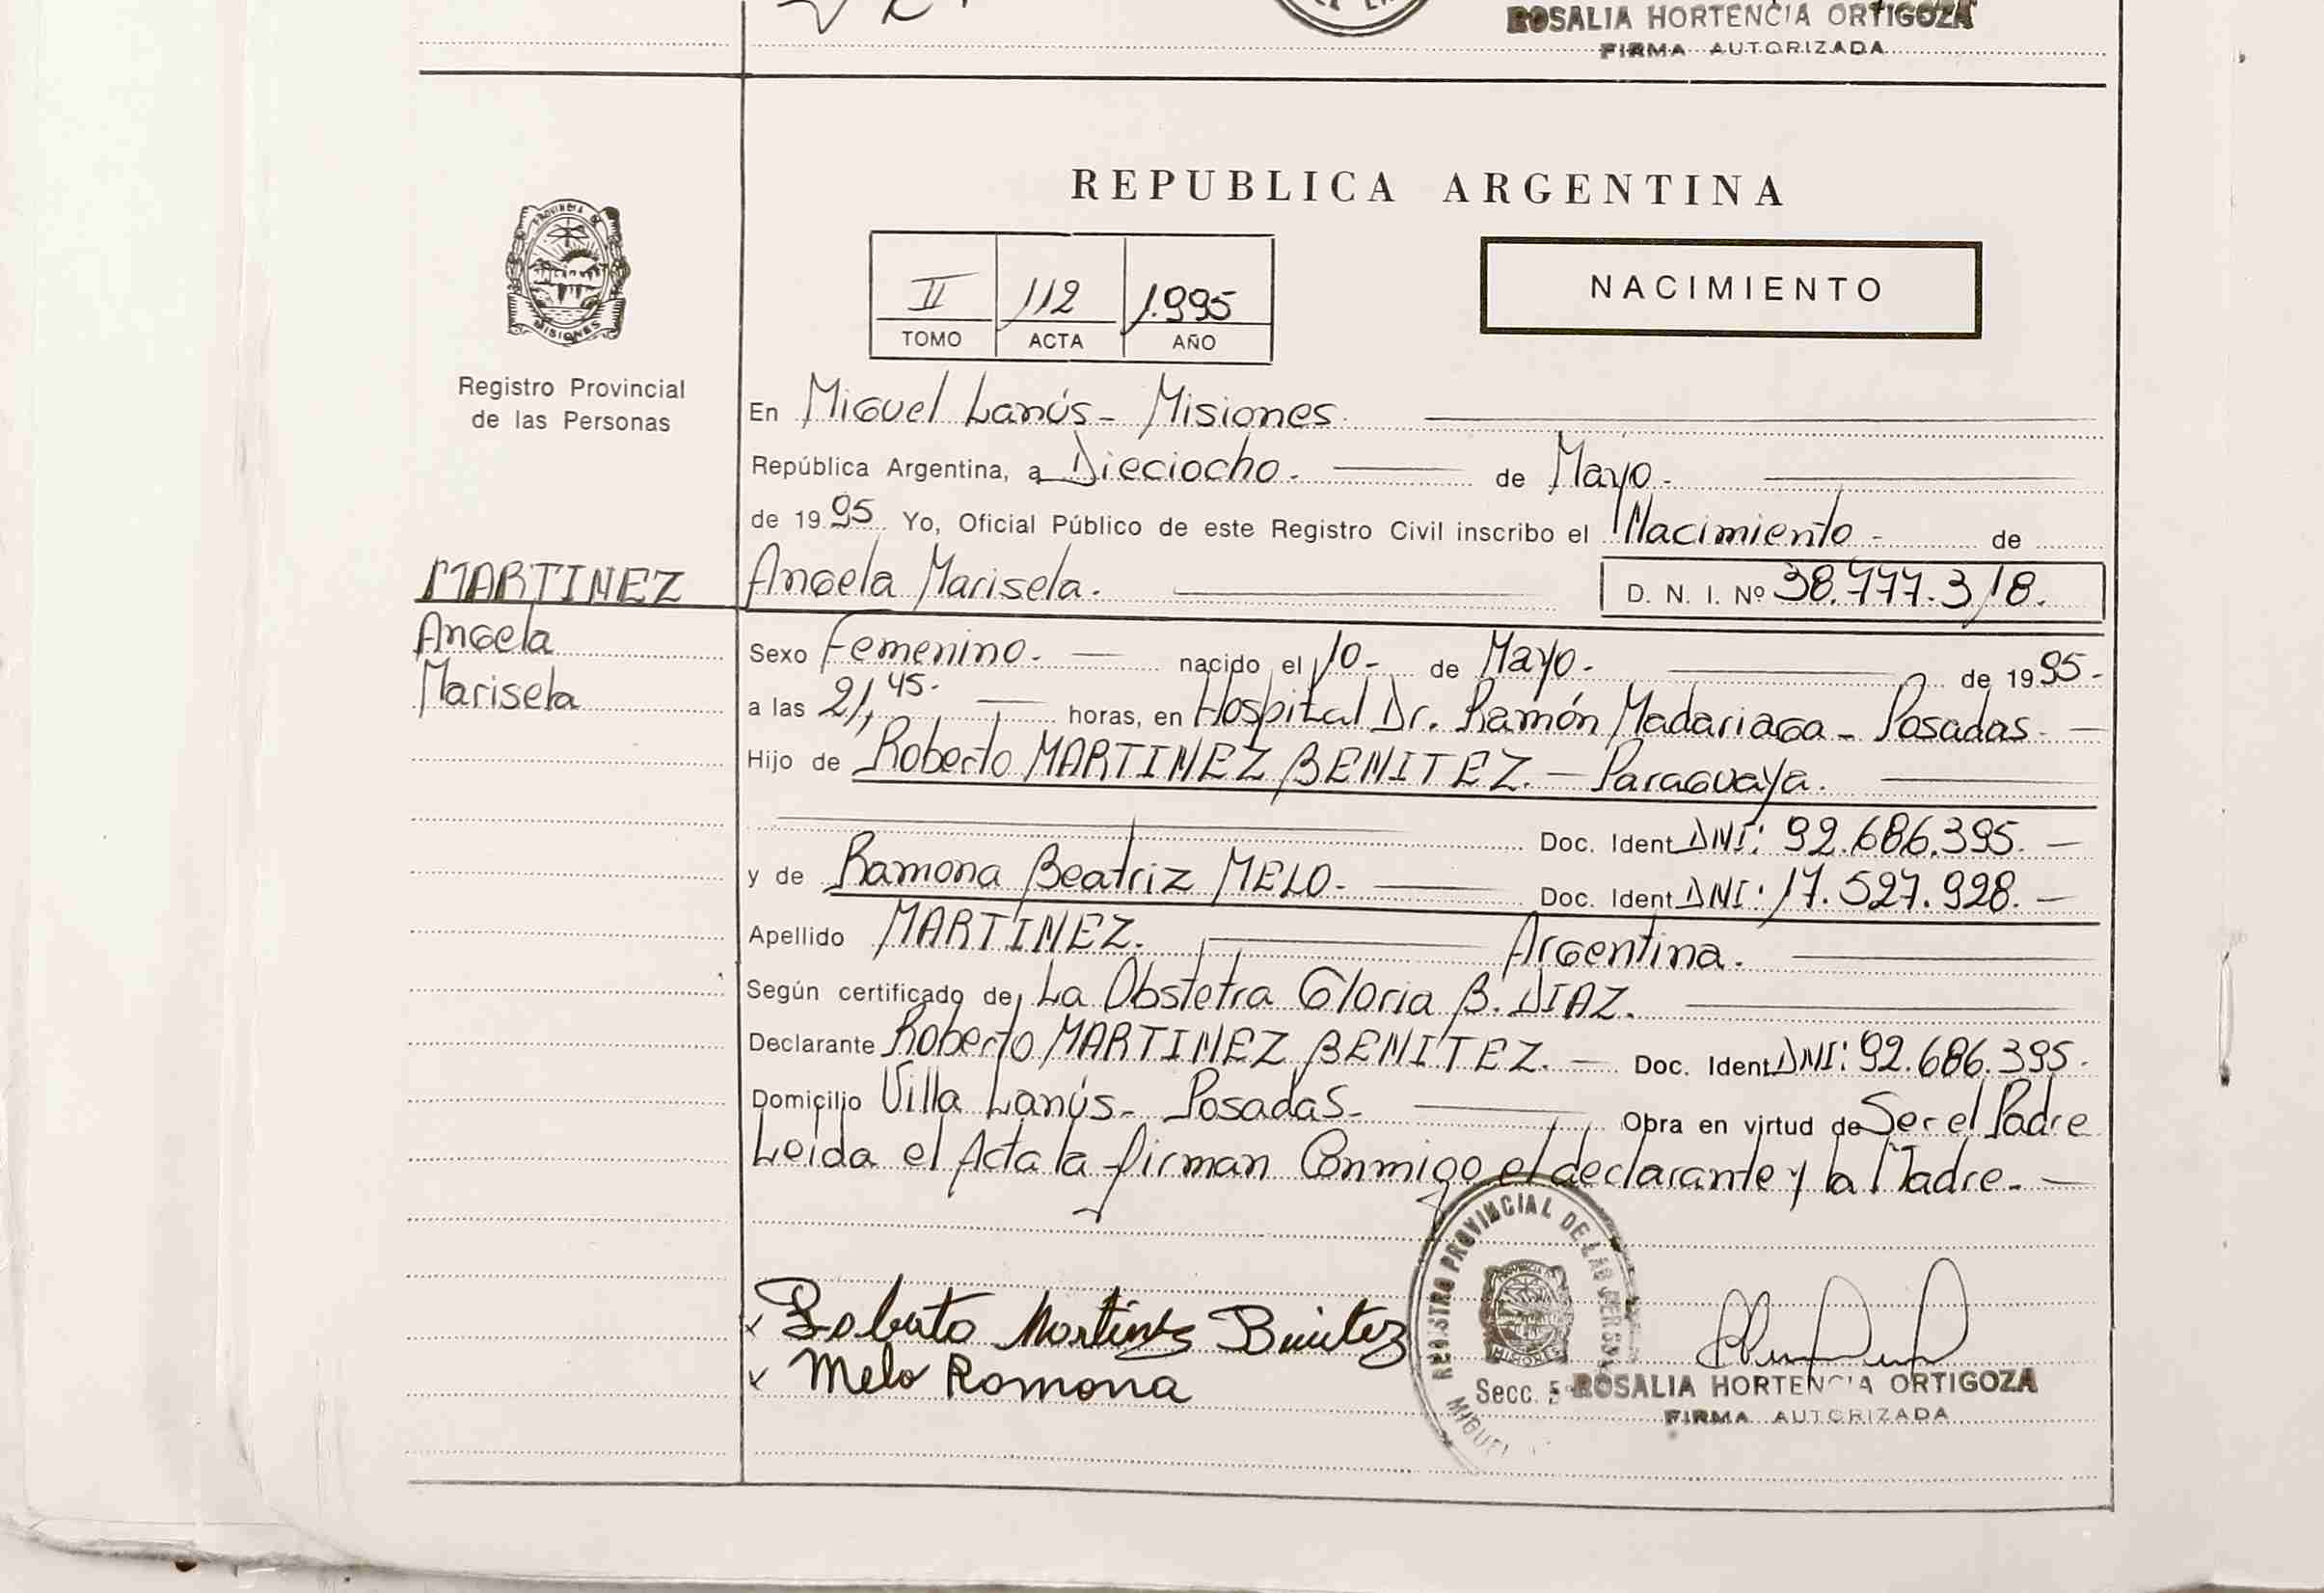 ROSALIA HORTENCIA ORTIGOZA
FIRMA AUTORIZADA
REPUBLICA ARGENTINA
PROVINCIA DE
MISIONES
II 112 1.995
TOMO ACTA AÑO
NACIMIENTO
Registro Provincial
de las Personas
En Miguel Lanús - Misiones.
República Argentina, a Dieciocho. de Mayo.
de 1995 Yo, Oficial Público de este Registro Civil inscribo el Nacimiento - de
MARTINEZ Angela Marisela. D. N. I. Nº 38.777.318.
Angela
Marisela
Sexo Femenino. nacido el 10 - de Mayo. de 1995 -
a las 21,45. horas, en Hospital Dr. Ramón Madariaga - Posadas.
Hijo de Roberto MARTINEZ BENITEZ. - Paraguaya.
Doc. Ident DNI: 92.686.395. -
y de Ramona Beatriz MELO - Doc. Ident DNI: 17.527.928. -
Apellido MARTINEZ. Argentina.
Según certificado de La Obstetra Gloria B. DIAZ.
Declarante Roberto MARTINEZ BENITEZ. - Doc. Ident DNI: 92.686.395.
Domicilio Villa Lanús - Posadas - Obra en virtud de Ser el Padre
Leida el Acta la firman Conmigo el declarante y la Madre. -
x Roberto Martinez Benitez
x Melo Ramona
REGISTRO PROVINCIAL DE LAS PERSO
MISIONES
Secc. 5
MIGUEL
ROSALIA HORTENCIA ORTIGOZA
FIRMA AUTORIZADA